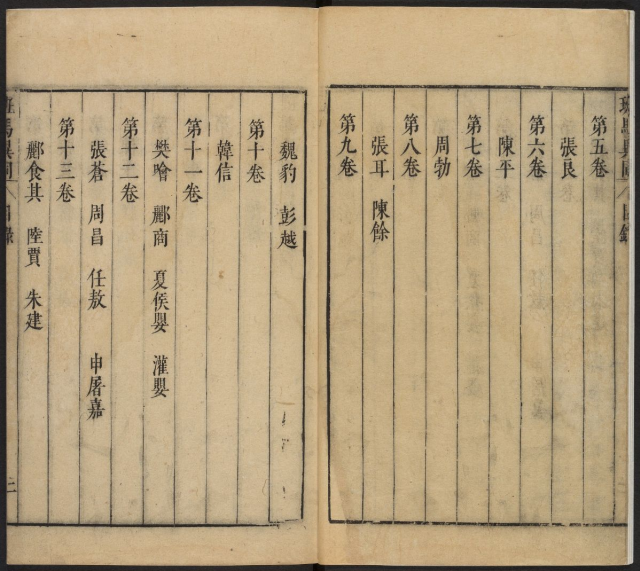 班馬異同 目錄
第五卷
張良
第六卷
陳平
第七卷
周勃
第八卷
張耳 陳餘
第九卷
魏豹 彭越
第十卷
韓信
第十一卷
樊噲 酈商 夏侯嬰 灌嬰
第十二卷
張蒼 周昌 任敖 申屠嘉
第十三卷
酈食其 陸賈 朱建
班馬異同 目錄 二